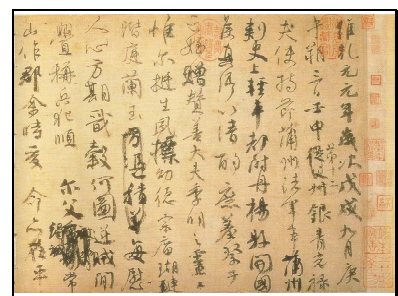 維乾元元年歲次戊戌九月庚
午朔三日壬申第十三叔從父銀青光祿
夫使持節蒲州諸軍事蒲州
刺史上輕車都尉丹楊縣開國
侯真卿以清酌庶羞祭于
亡姪贈贊善大夫季明之靈曰
惟爾挺生夙標幼德宗廟瑚璉
階庭蘭玉方憑積善每慰
人心方期戩穀何圖逆賊間
釁稱兵犯順爾父竭誠常
山作郡余時受命亦在平